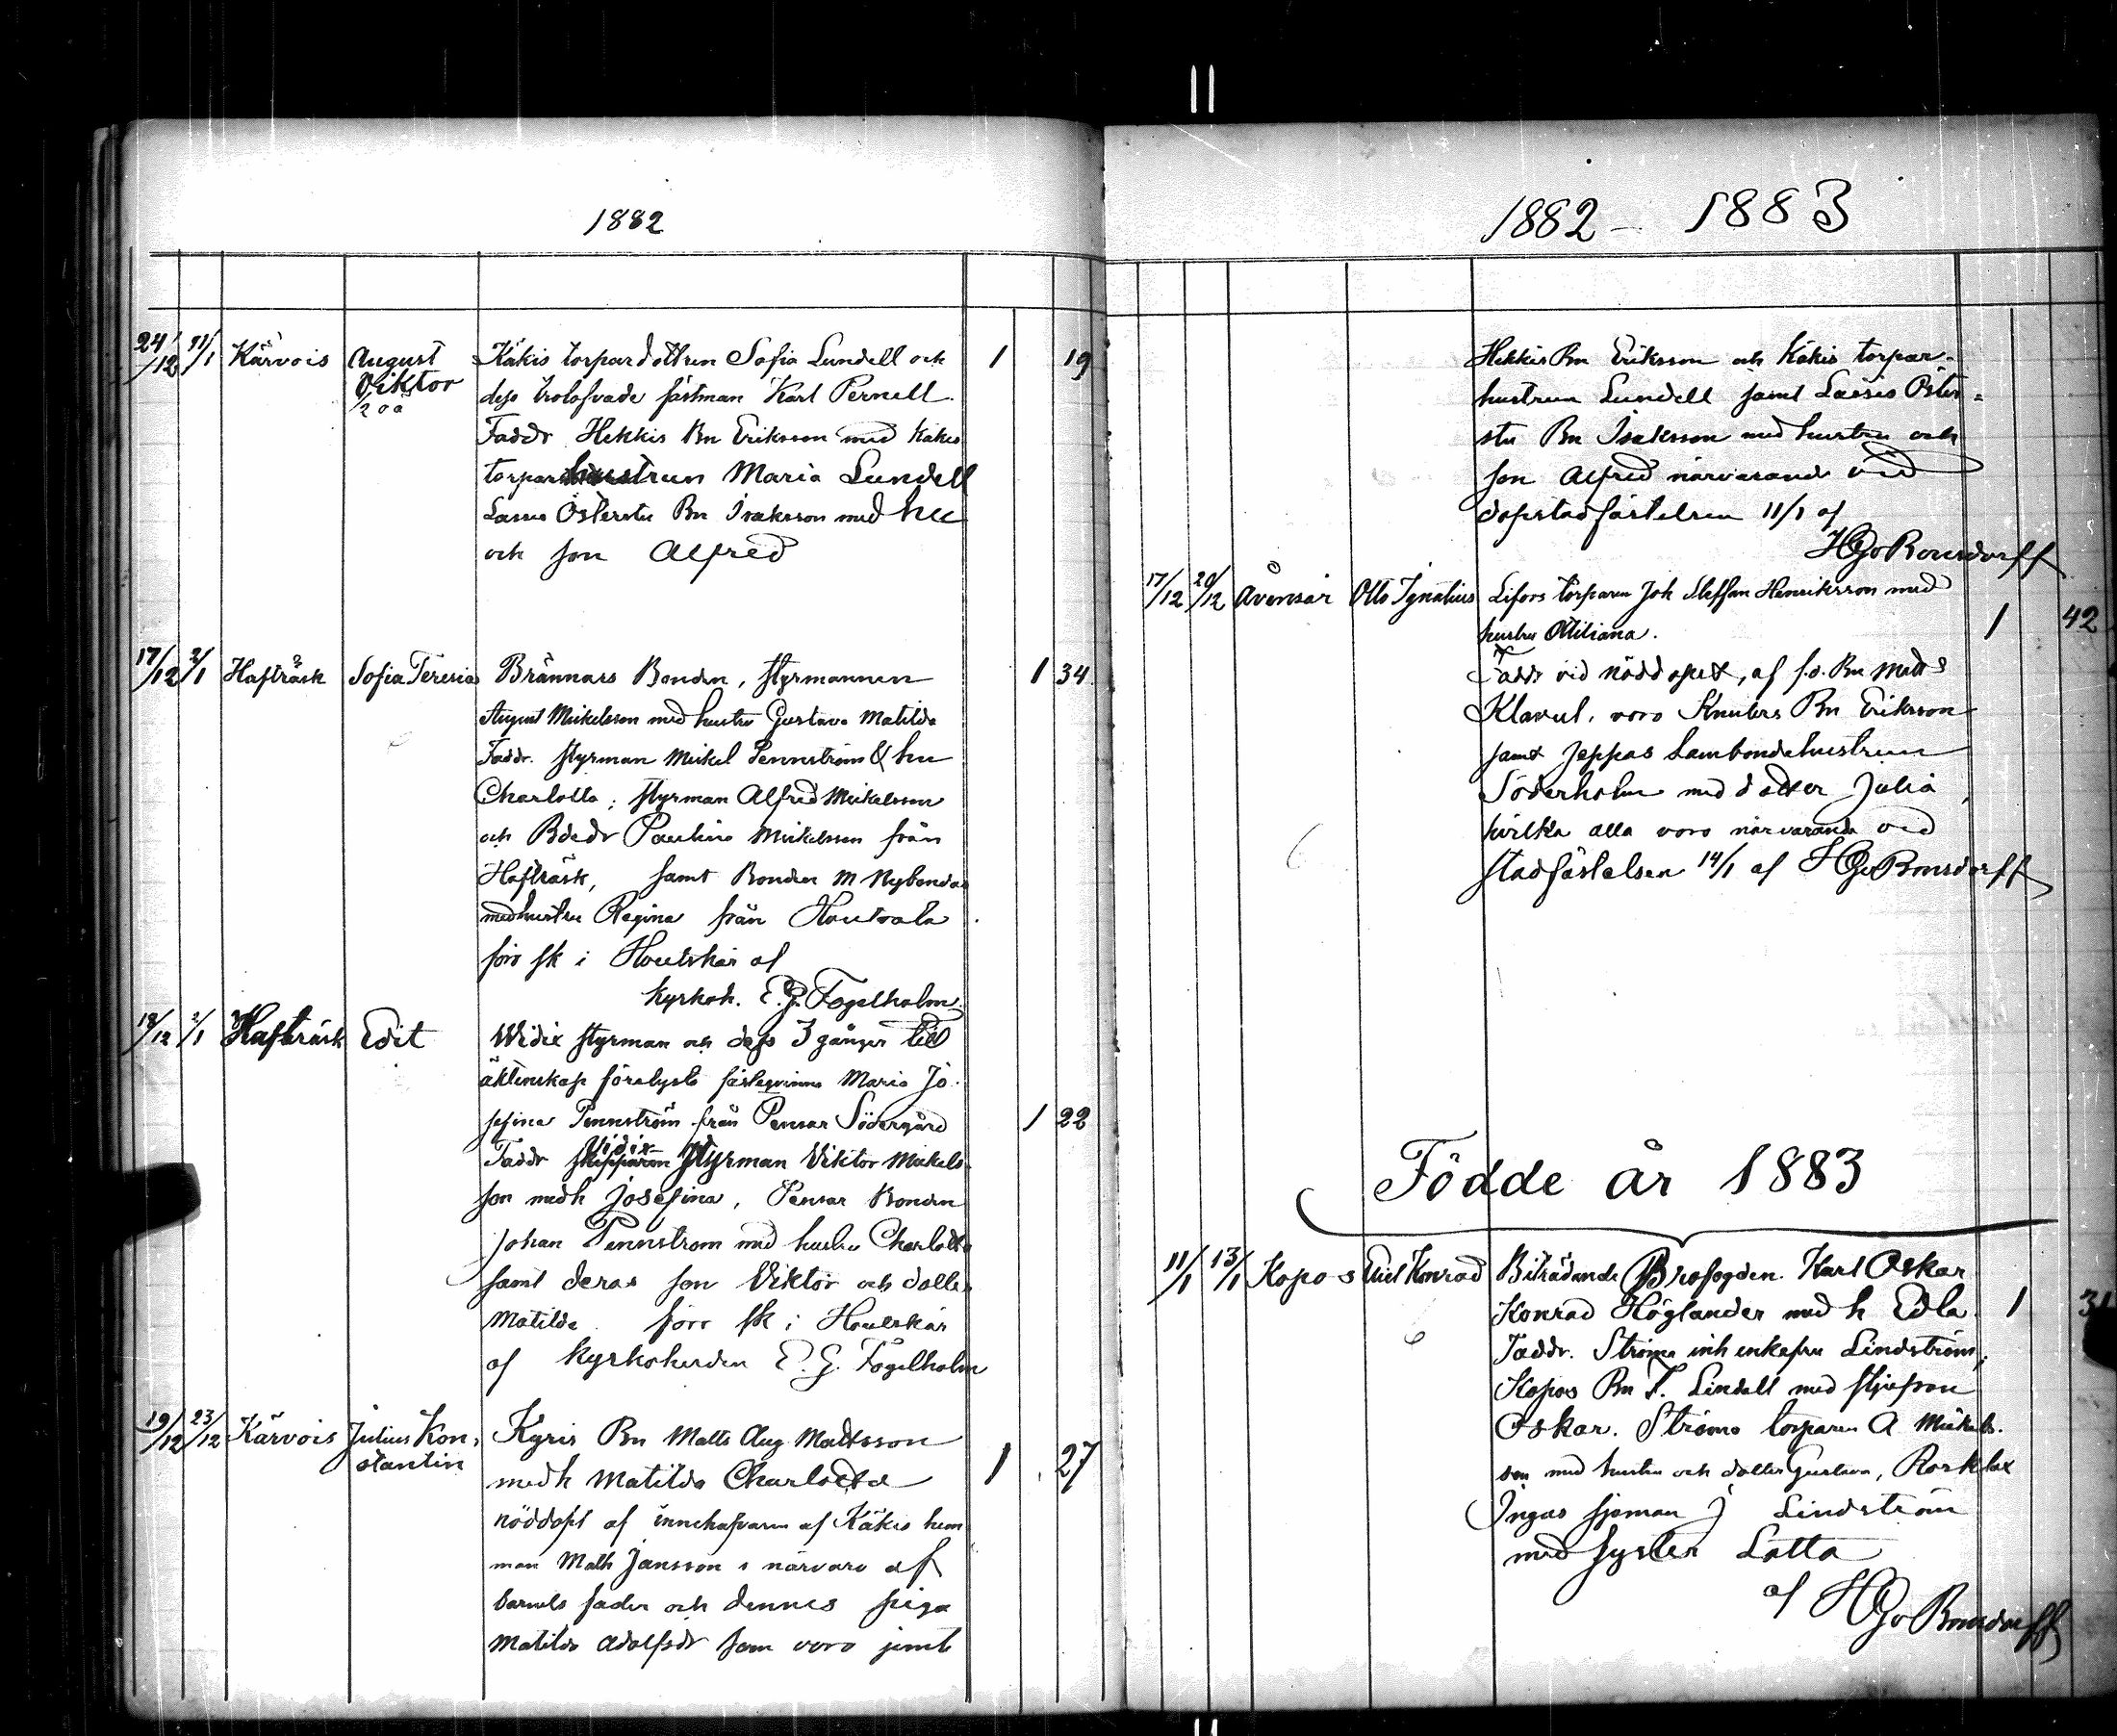 1882
24/12 11/1 Kärvois August Käkis torpardottren Sofia Lundell och 1 19
Viktor dess trolofvade fästman Karl Pernell.
Faddr Hekkis Bn Eriksson med Käkis
torparhustrun Maria Lundell
Lassis Österstu Bn Isaksson med hu
och son Alfred
17/12 2/1 Hafträsk Sofia Teresia Brännars Bonden, styrmannen 1 34
August Mickelsson med hustru Gustava Matilda
Faddr. styrman Mickel Pennström & hu
Charlotta; styrman Alfred Mickelsson
och Bdedr Paulina Mickelsson från
Hafträsk, samt Bonden M Nybondas
med hustru Regina från Houtsala
förs sk i Houtskär af
Kyrkoh. E. G. Fogelholm.
18/12 2/1 Hafträsk Edit Widix styrman och dess 3 gånger till
äktenskap förelyste fästeqvinna Maria Jo-
sefina Pennström från Pensar Södergård 1 22
Vidix
Faddr skepparen styrman Viktor Mickels-
son med h Josefina, Pensar Bonden
Johan Pennström med hustru Charlotta
samt deras son Viktor och dotter
Matilda förs sk i Houtskär
af Kyrkoherden E. G. Fogelholm
19/12 23/12 Kärvois Julius Kon- Kyris Bn Matts Aug. Mattsson
stantin med h Matilda Charlotta 1 27
nöddopt af innehafvaren af Käkis hem
man Math Jansson i närvaro af
barnets fader och dennes piga
Matilda Adolfsdr som voro jemte
1882 - 1883
Hekkis Bn Eriksson och Käkis torpar-
hustrun Lundell samt Lassis Öster-
stu Bn Isaksson med hustru och
son Alfred närvarande vid
dopstadfästelsen 11/1 af
HGvBonsdorff
17/12 20/12 Åvensår Otto Ignatius Lifors torparen Joh Steffan Henriksson med
hustru Ottiliana. 1 42
Faddr vid nöddopet, af f.d. Bn Matts
Klavul, voro Knuters Bn Eriksson
samt Jeppas Lambondehustrun
Söderholm med dotter Julia,
hvilka alla voro närvarande vid
stadfästelsen 14/1 af HGvBonsdorff
Födde år 1883
11/1 13/1 Kopo-s Axel Konrad Biträdande Brofogden Karl Oskar
Konrad Höglander med h Edla. 1 31
Faddr. Ströms inh enkefru Lindström,
Kopos Bn F. Lindell med styfson
Oskar. Ströms torparen A Mickels-
son med hustru och dotter Gustava, Rosklax
Ingas sjöman J Lindström
med syster Lotta
af HGvBonsdorff